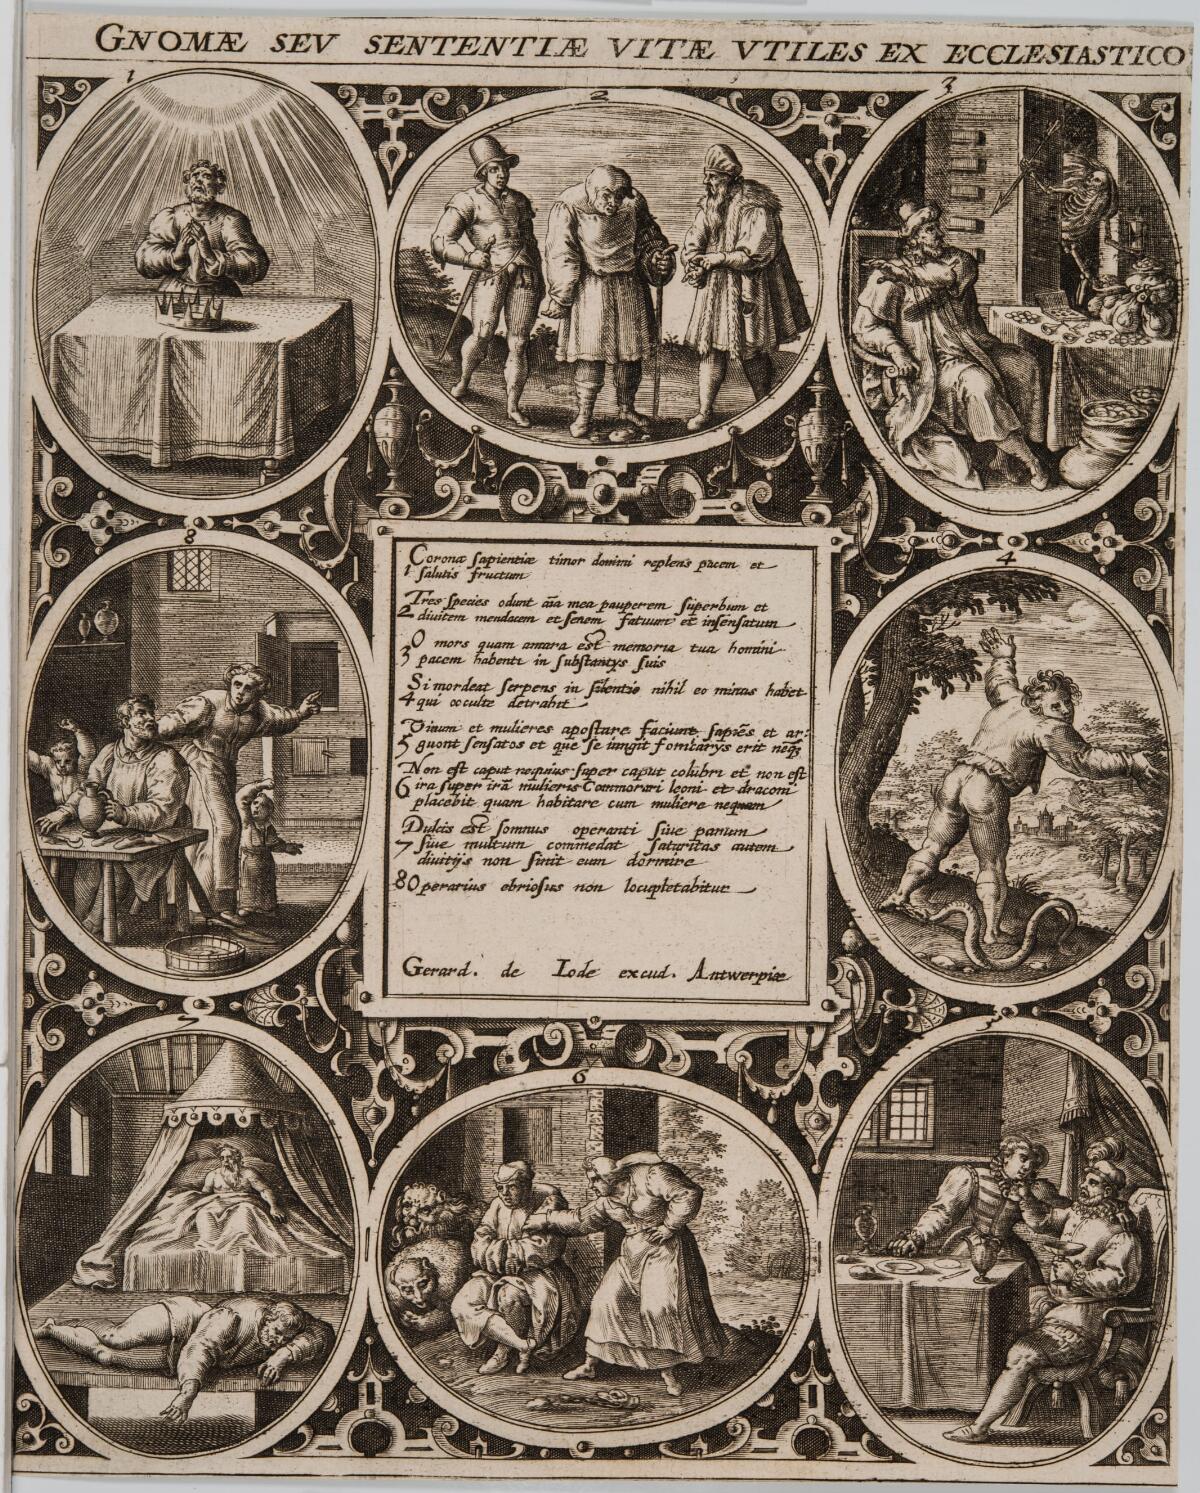 GNOMÆ SEV SENTENTIÆ VITÆ VTILES EX ECCLESIASTICO
1
2
3
8
4
Coronæ sapientiæ timor domini replens pacem et
1 salutis fructum
Tres species odunt aīa mea pauperem superbum et
2 divitem mendacem et senem fatuum et insensatum
O mors quam amara est memoria tua homini
3 pacem habenti in substantys suis
Si mordeat serpens in silentio nihil eo minus habet
4 qui occulte detrahit
Vinum et mulieres apostare faciunt sapiēs et ar:
5 guont sensatos et que se iungit fornicarys erit neq
Non est caput nequius super caput colubri et non est
6 ira super irā mulieris Commorari leoni et draconi
placebit quam habitare cum muliere nequam
Dulcis est somnus operanti sive parum
7 sive multum commedat saturitas autem
divitys non sinit eum dormire
8 Operarius ebriosus non locupletabitur
Gerard. de Iode excud. Antwerpiæ
7
6
5